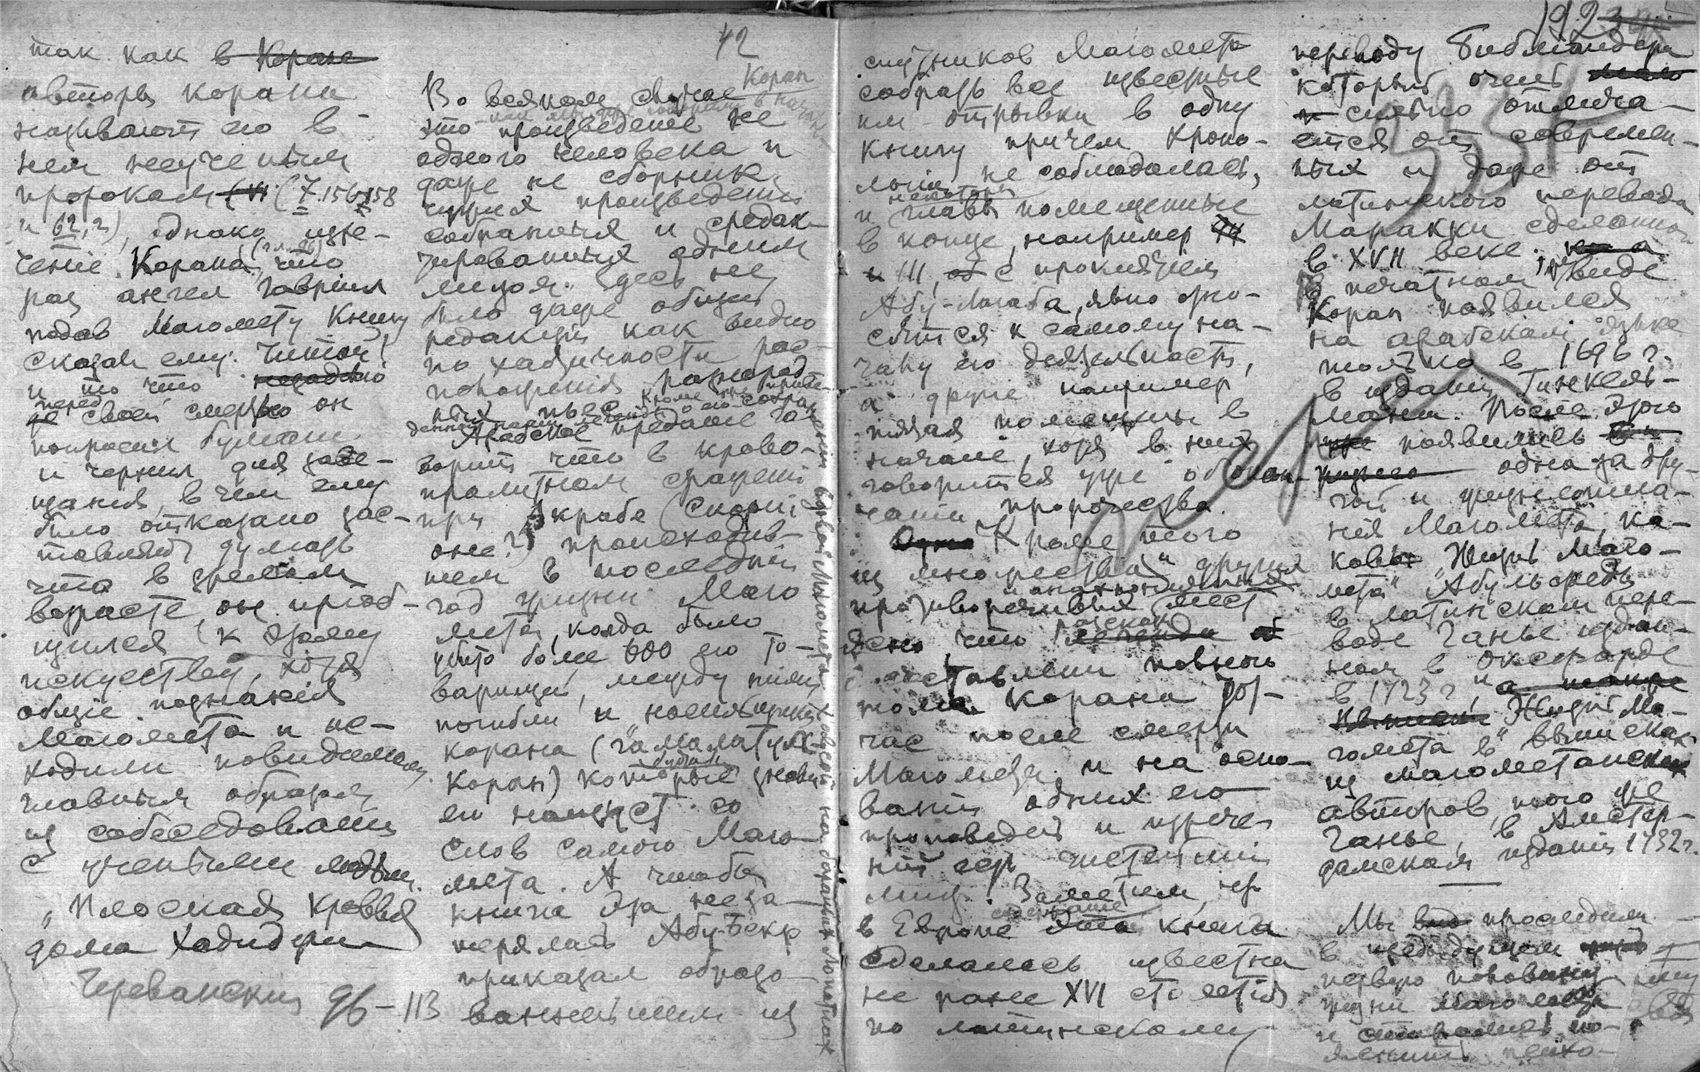 так как в Коране
авторы корана
называют его в
нем неученым
пророком (VI (7.156, 158
и 62,2), однако изре-
чение Корана (гл. 96), что
раз ангел Гавриил
подав Магомету Книгу
сказал ему: Читай!
и то что незадолго
перед своей смертью он
попросил бумаги
и чернил для заве-
щания, в чем ему
было отказано зас-
тавляют думать
что в зрелом
возрасте, он приоб-
щился к этому
искусству, хотя
общие познания
Магомета и ис-
ходили повидимому,
главным образом
из собеседования
с учеными людьми.
"Плоская кровля
дома Хадиджи
Череванский 96-113
42
Во всяком случае Коран
это произведение не
одного человека и
даже не сборник
чужих произведений
собранных и средак-
тированных одним
лицом. Здесь не
было даже общей
редакции как видно
по хаотичности рас-
положения разнород-
ных пьес. Кроме
Арабское предание го-
ворит что в крово-
пролитном сражении
при Акрабе (
оне?) происходив-
шем в последний
год жизни Маго
мета, когда было
убито более 600 его то-
варищей, между ними
погибли и носители
корана (гамалатуль-
Коран) которые знали
его наизуст со
слов самого Маго-
мета. А чтобы
книга эта не за-
терялась Абу-Бекр
приказал образо-
ваннейшим из
вдовой Магомета Хафсой на бараньих лопатках
спутников Магомета
собрать все известные
им отрывки в одну
книгу причем хроно-
логия не соблюдалась,
и некоторые главы помещенные
в конце, например
и 111, с проклятием
Абу-Лагаба, явно отно-
сятся к самому на-
чалу его деятельности,
а другие например
пятая помещены в
начале, хотя в них
говорится уже об окон-
чании пророчества.
Одно Кроме того
из множества других
и анахронических
противоречивых мест
ясно, что
составлены
тома Корана тот-
час после смерти
Магомета, и на осно-
вании одних его
проповедей и изрече-
ний
Заметим, что
в Европе эта книга
сделалась известна
не ранее XVI столетия
по латинскому
192
переводу Библиандера
который очень мало
и сильно отлича-
ется от современ-
ных и даже от
латинского перевода
Маракки сделанного
в XVII веке.
В печатном же виде
Коран появился
на арабском языке
только в 1696 г.
в издании Гинкель-
мана. После этого
появились
одна за дру-
гой и жизнеописа-
ния Магомета, ка-
ковы "Жизнь Маго-
мета" Абульфеды
в латинском пере-
воде Ганье издан-
ном в Оксфорде
в 1723 г, и а также
Жизнь Ма-
гомета в выписках
из магометанских
авторов, того же
Ганье, в Амстер-
дамском издании 1732 г.
Мы проследили
в предыдущем
первую половину
жизни Магомета
и старались по-
яснить психо-